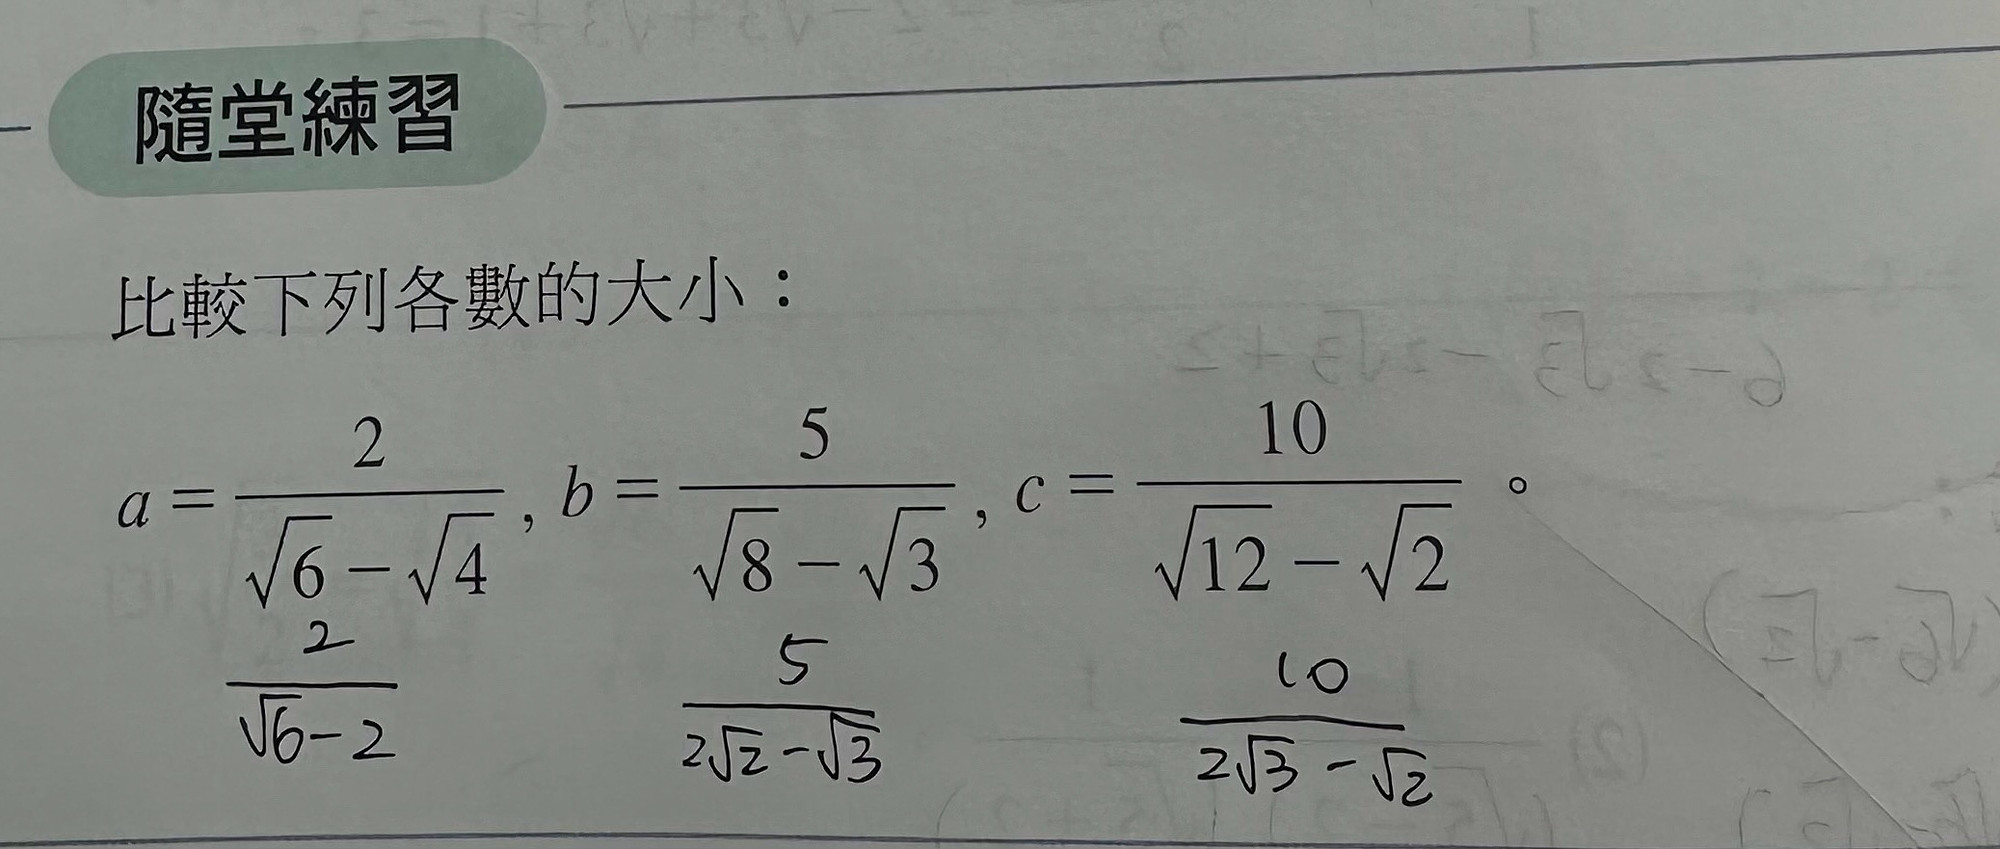 隨堂練習
比較下列各數的大小：
a = 2/(√6 − √4) , b = 5/(√8 − √3) , c = 10/(√12 − √2) 。
2/(√6 − 2) 5/(2√2 − √3) 10/(2√3 − √2)